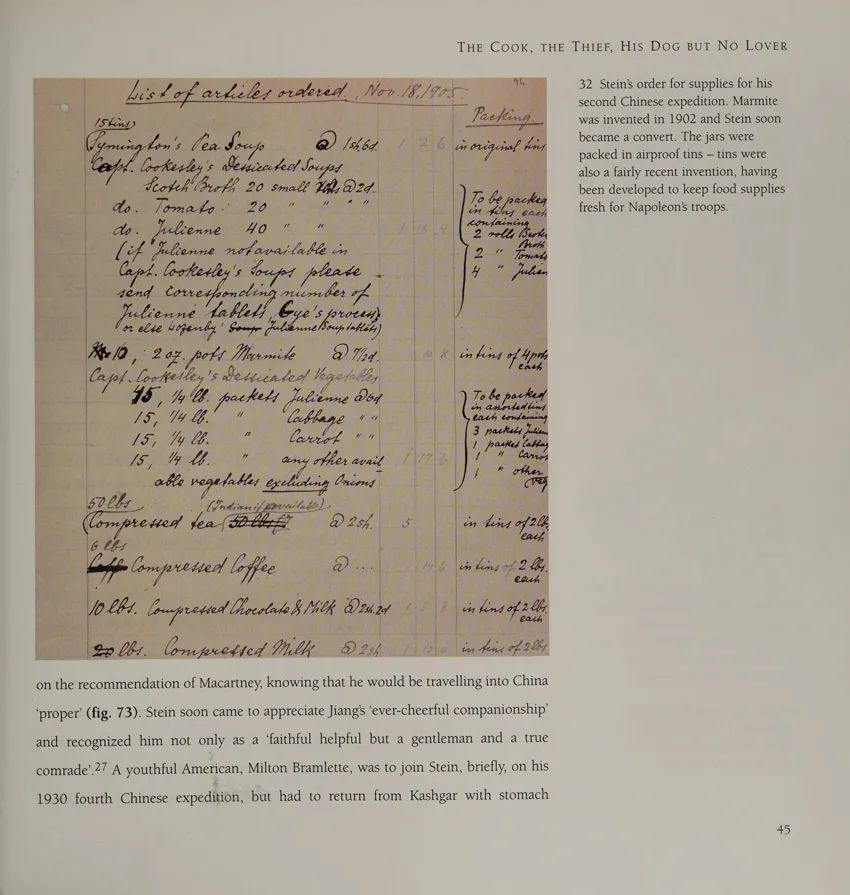 THE COOK, THE THIEF, HIS DOG BUT NO LOVER
List of articles ordered. Nov. 18, 1905.
Packing
15 tins
Symington's Pea Soup @ 1sh6d. 1 2 6 in original tins
Capt. Cookesley's Dessicated Soups
Scotch Broth 20 small @ 2d.
do. Tomato 20 " " " "
do. Julienne 40 " "
(if Julienne not available in
Capt. Cookesley's Soups please
send corresponding number of
Julienne tablets, process,
or else Julienne Soup tablets)
To be packed
in tins each
containing
2 rolls Scotch
Broth
2 " Tomato
4 " Julien
10, 2 oz. pots Marmite @ 7½d. in tins of 4 pots
each
Capt. Cookesley's Dessicated Vegetables
45, ¼ lb. packets Julienne @ 6d
15, ¼ lb. " Cabbage " "
15, ¼ lb. " Carrot " "
15, ¼ lb. " any other avail 1 17 6
able vegetables excluding Onions
To be packed
in assorted tins
each containing
3 packets Julien
1 packet Cabbag
1 " Carrot
1 " other
veg
50 lbs (Indian if available)
Compressed tea 50 lbs @ 2sh. 5 in tins of 2 lb,
each
6 lbs
Compressed Coffee @ ... in tins of 2 lbs.
each
10 lbs. Compressed Chocolate & Milk @ 2sh.2d 1 1 8 in tins of 2 lbs,
each
20 lbs. Compressed Milk @ 2sh. 1 10 in tins of 2 lbs
32 Stein's order for supplies for his
second Chinese expedition. Marmite
was invented in 1902 and Stein soon
became a convert. The jars were
packed in airproof tins – tins were
also a fairly recent invention, having
been developed to keep food supplies
fresh for Napoleon's troops.
on the recommendation of Macartney, knowing that he would be travelling into China
'proper' (fig. 73). Stein soon came to appreciate Jiang's 'ever-cheerful companionship'
and recognized him not only as a 'faithful helpful but a gentleman and a true
comrade'.27 A youthful American, Milton Bramlette, was to join Stein, briefly, on his
1930 fourth Chinese expedition, but had to return from Kashgar with stomach
45